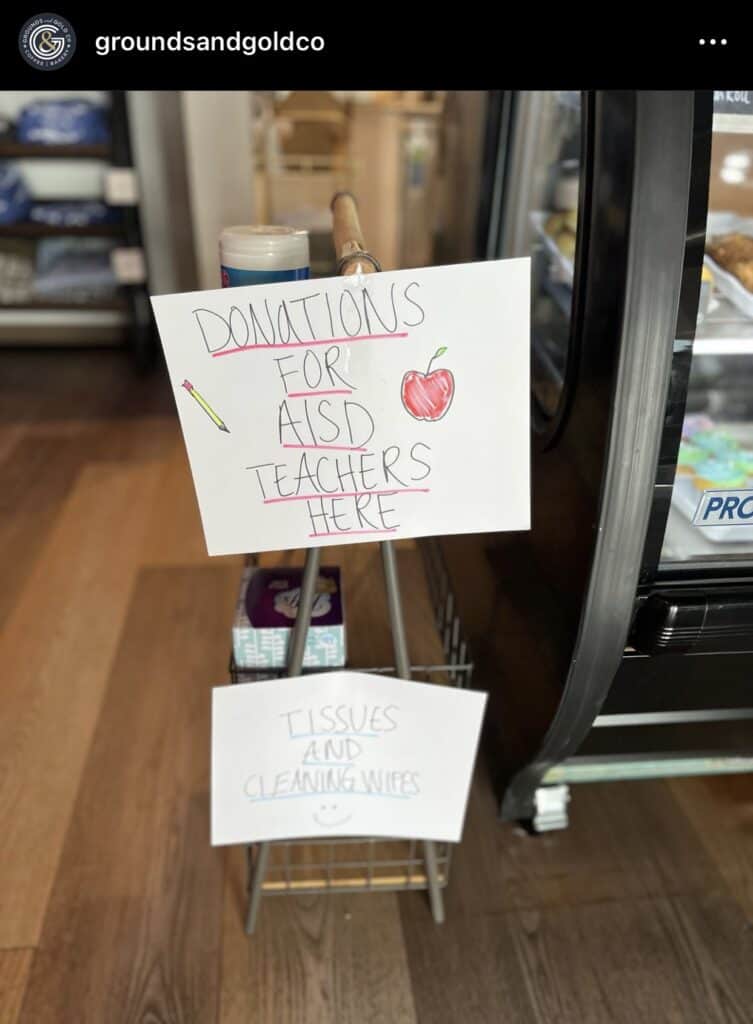 groundsandgoldco
DONATIONS
FOR
AISD
TEACHERS
HERE
PRO
TISSUES
AND
CLEANING WIPES